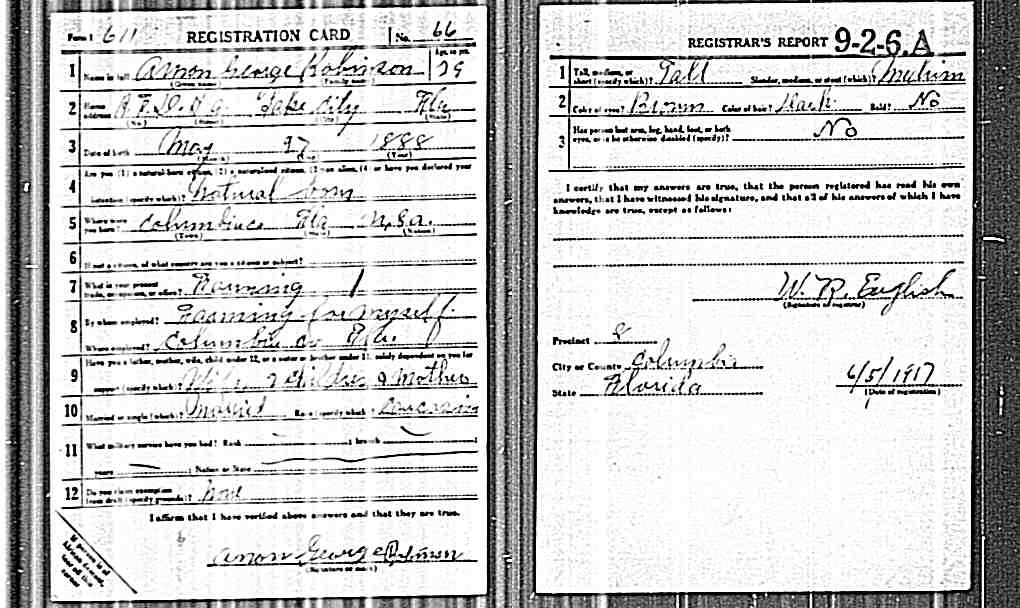 Form 1 611 REGISTRATION CARD No. 66
1 Name in full Arron George Robinson Age, in yrs. 29
(Given name) (Family name)
2 Home address R.F.D. #a. Lake City Fla
(No.) (Street) (City) (State)
3 Date of birth May 27 1888
(Month) (Day) (Year)
4 Are you (1) a natural-born citizen, (2) a naturalized citizen, (3) an alien, (4) or have you declared your
intention (specify which)? Natural born
5 Where were you born? Columbia co Fla U.S.a.
(Town) (State) (Nation)
6 If not a citizen, of what country are you a citizen or subject?
7 What is your present trade, occupation, or office? Farming 1
8 By whom employed? Farming for myself
Where employed? Columbia co Fla.
9 Have you a father, mother, wife, child under 12, or a sister or brother under 12, solely dependent on you for
support (specify which)? Wife, 2 Children & Mother
10 Married or single (which)? Married Race (specify which)? Caucasian
11 What military service have you had? Rank ; branch ;
years ; Nation or State
12 Do you claim exemption from draft (specify grounds)? None
I affirm that I have verified above answers and that they are true.
Arron George Robinson
(Signature or mark)
If person is of African descent, tear off this corner
REGISTRAR'S REPORT 9-2-6.A
1 Tall, medium, or short (specify which)? Tall Slender, medium, or stout (which)? Medium
2 Color of eyes? Brown Color of hair? Dark Bald? No
3 Has person lost arm, leg, hand, foot, or both eyes, or is he otherwise disabled (specify)? No
I certify that my answers are true, that the person registered has read his own
answers, that I have witnessed his signature, and that all of his answers of which I have
knowledge are true, except as follows:
W. R. English
(Signature of registrar)
Precinct 8
City or County Columbia
State Florida 6/5/1917
(Date of registration)